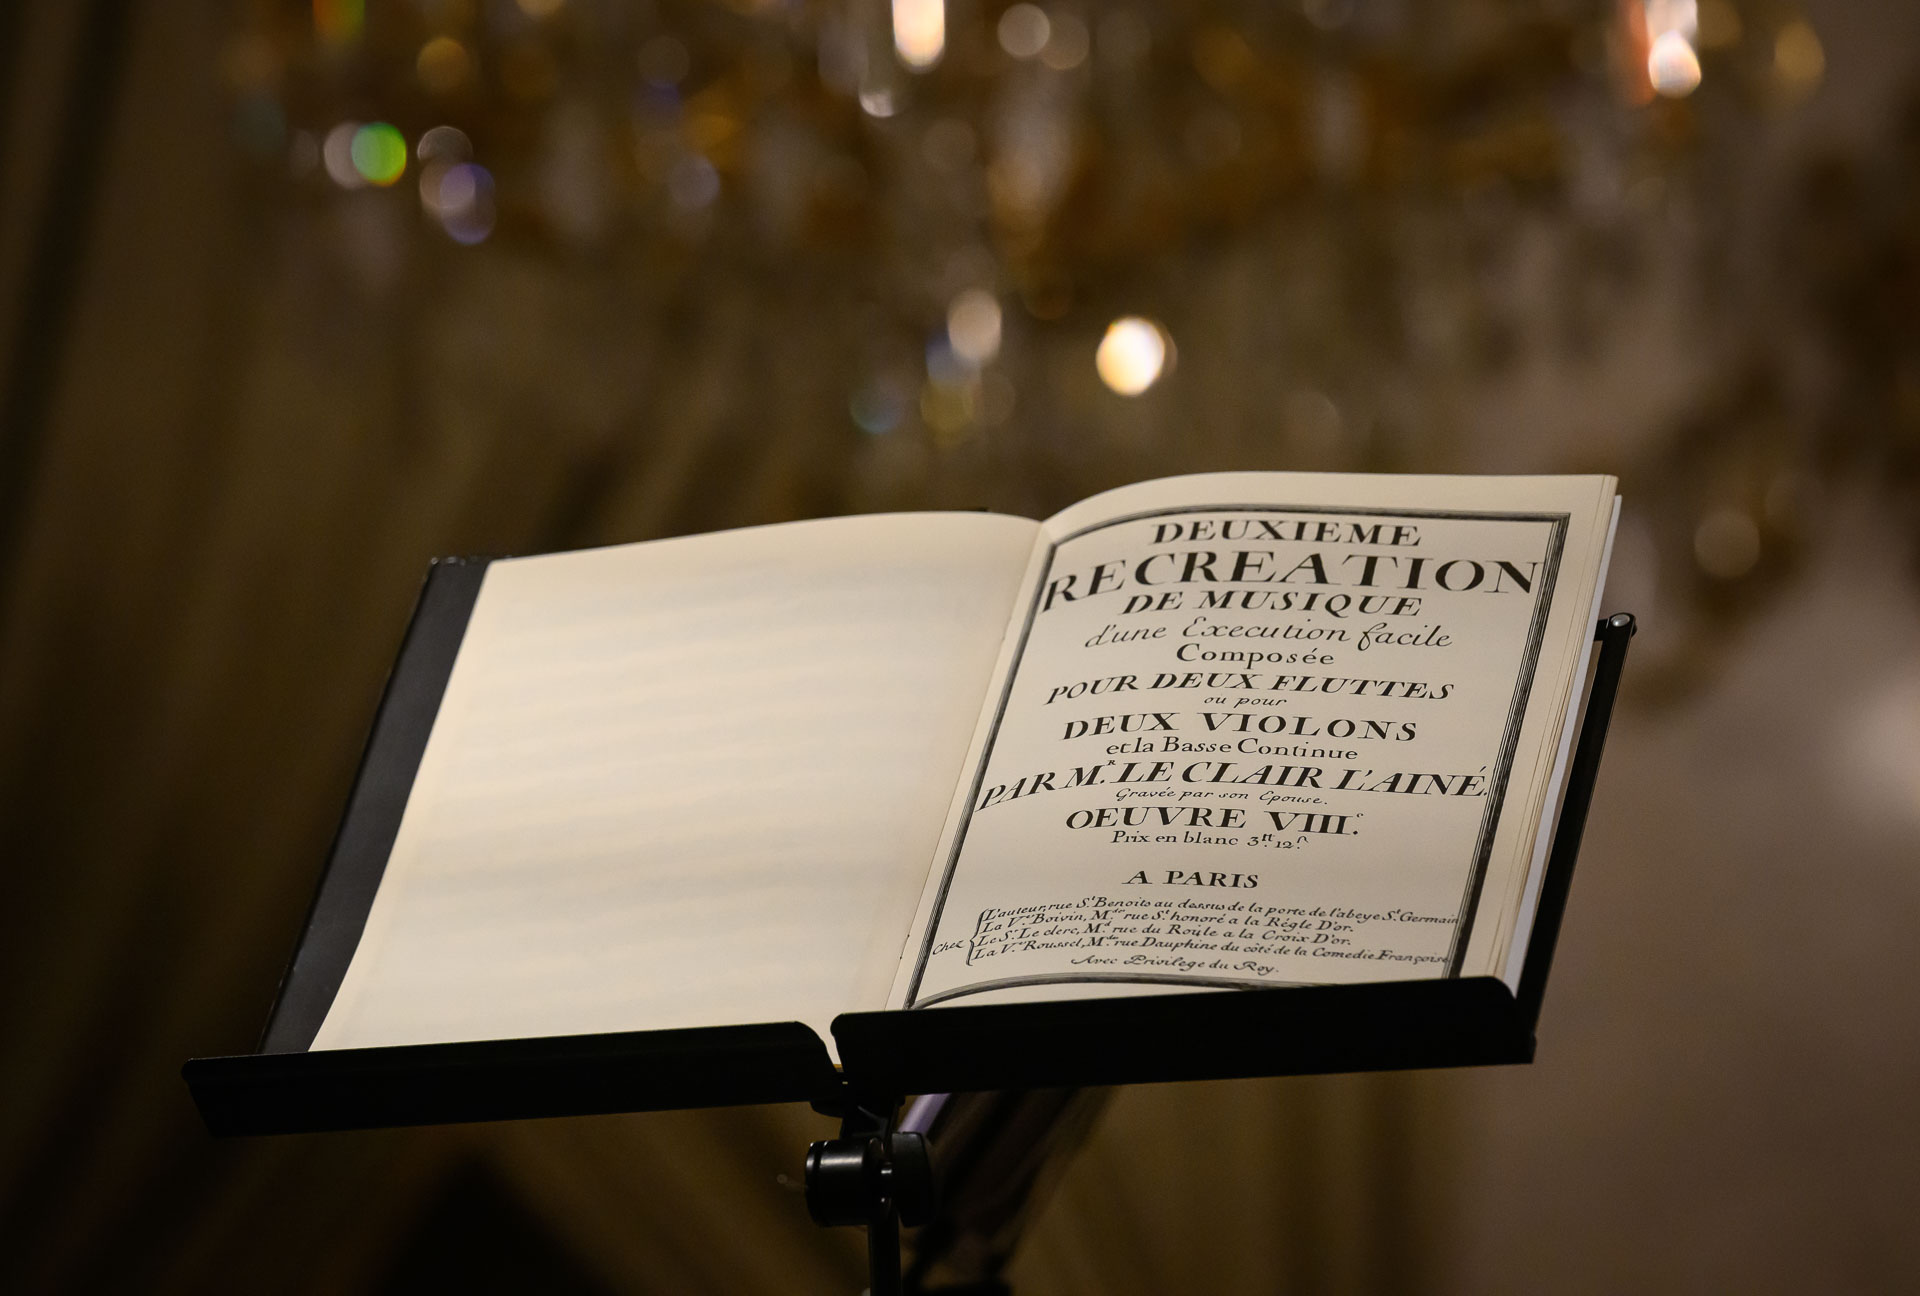 DEUXIEME
RECREATION
DE MUSIQUE
d'une Execution facile
Composée
POUR DEUX FLUTTES
ou pour
DEUX VIOLONS
et la Basse Continue
PAR M.R LE CLAIR L'AINÉ.
Gravée par son Epouse.
OEUVRE VIII.e
Prix en blanc 3.tt 12.s
A PARIS
Chez
L'auteur, rue St. Benoits au dessus de la porte de l'abeye St. Germain
La V.ve Boivin, M.de rue St. honoré a la Régle D'or.
Le Sr. Le clerc, M.d rue du Roule a la Croix D'or.
La V.ve Roussel, M.de rue Dauphine du côté de la Comedie Françoise
Avec Privilege du Roy.